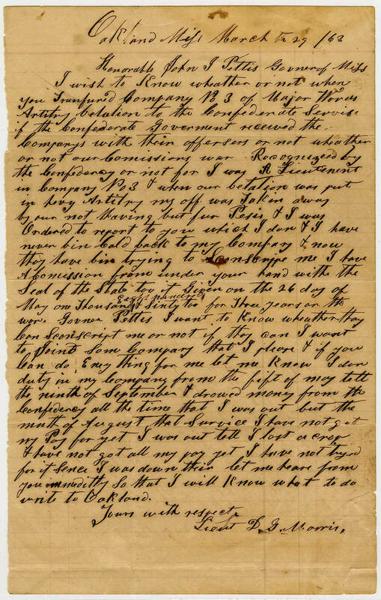 Oakland Miss March the 29 /63
Honorable John J Pettis Govnor of Miss
I wish to Know wheather or not when
you Tranfured Company No 3 of Major
Artilry Batalion to the Confederate Servis
if the Confederate Goverment received the
Companys with their offersers or not wheather
or not our Comissions war Recognized by
the Confederacy or not for I was A Lieutenent
in Company No 3 & when our batalion was put
in hevy Artilry my off was Taken away
by our not having but fur Peses & I was
Ordered to report to you which I don & I have
never bin Cald back to my Company & now
they have bin trying to Conscripe me I have
A comission from under your hand with the
Seal of the State to it Given on the 26 day of
May one Thousand Eight hundred Sixty two for Three years or the
ware Govner Pettis I want to Know wheather they
Can Conscript me or not if they Can I want
to Joint Som Company that I pleas & if you
Can do Eny thing for me let me Know I don
duty in my Company from the fift of may tell
the ninth of September I drawed money from the
Confidercy all the time that I was out but the
month of August that Service I have not got
my Pay for yet I was out tell I lost a crop
& have not got all my pay yet I have not
for it Sence I was down thir let me hear from
you So that I will Know what to do
writ to Oakland.
Yours with respects
Lieut D. G. Morris,